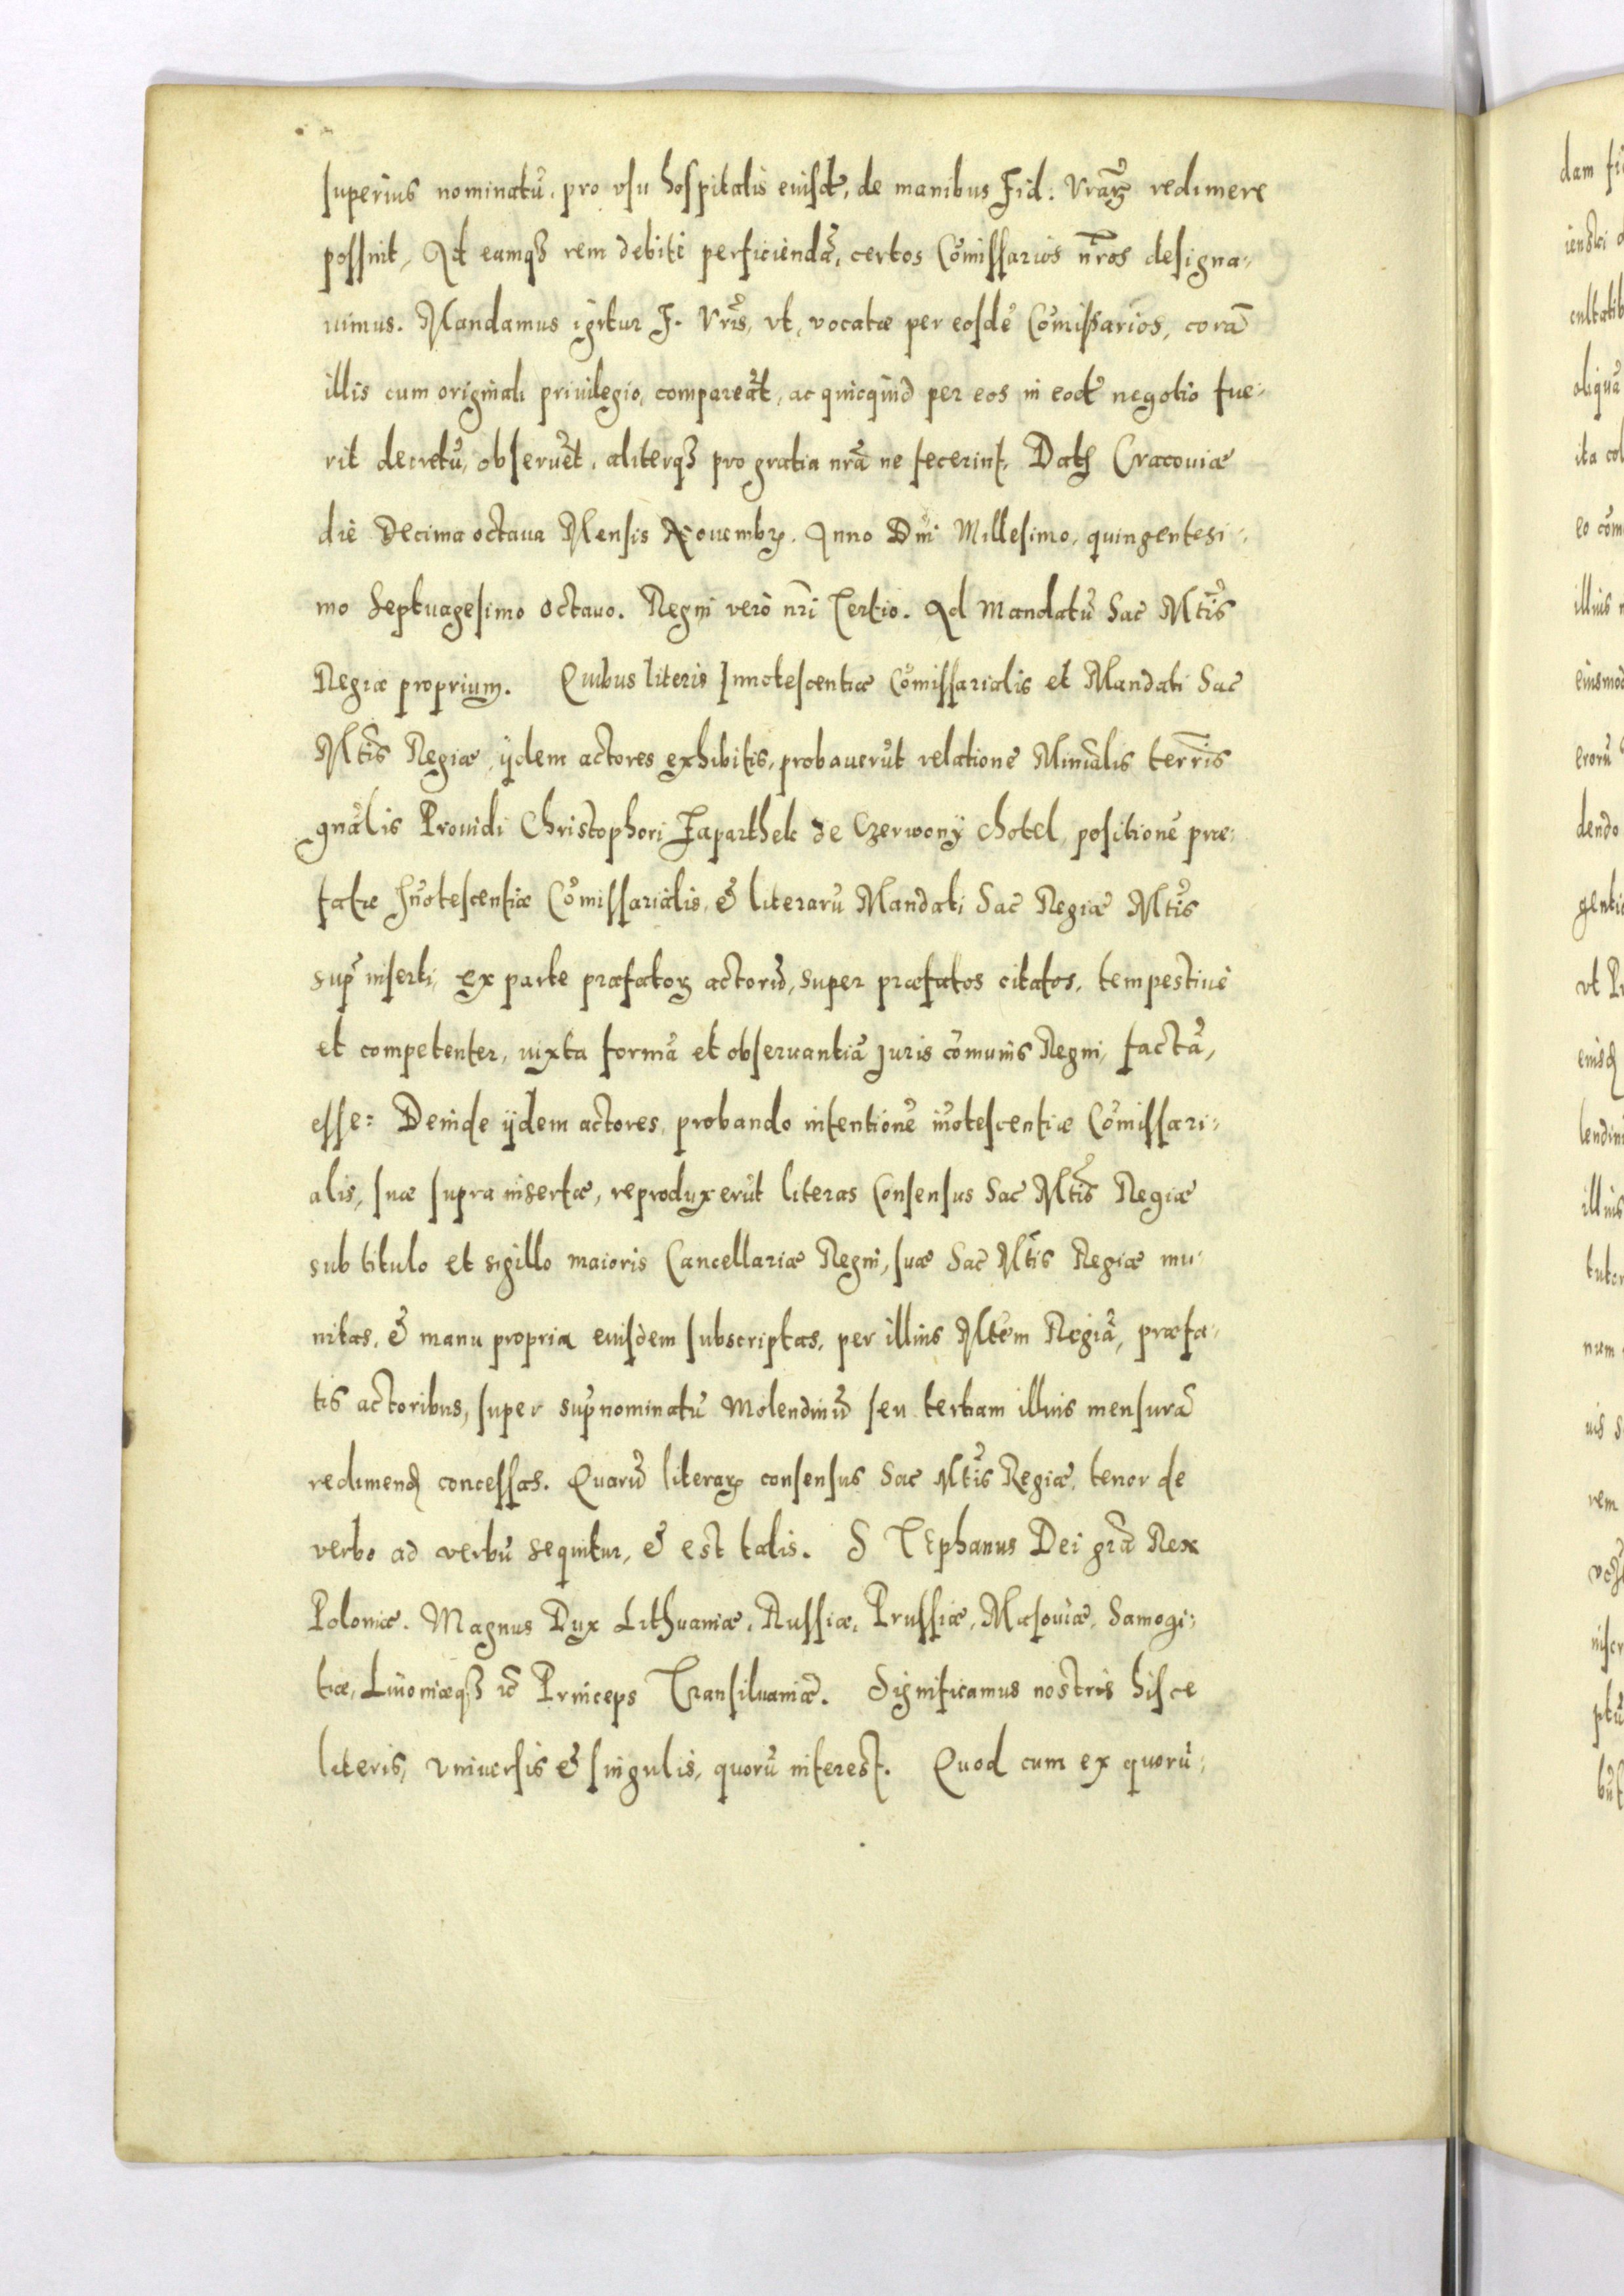 superius nominatũ, pro vsu hospitalis eiusd̃, de manibus Fid: Vrãrꝫ redimere
possint, Ad eamqꝫ rem debitè perficiendã, certos Cõmissarios nr̃os designa-
uimus. Mandamus igitur F. Vrĩs, vt, vocatæ per eosdẽ Cõmissarios, corã
illis cum originali priuilegio, compareãt, ac quicquid per eos in eod̃ negotio fue-
rit decretũ, obseruẽt, aliterqꝫ pro gratia nrã ne fecerint. Datꝫ Cracouiæ
die Decima octaua Mensis Nouembrꝫ. Anno Dñi Millesimo, quingentesi-
mo Septuagesimo octauo. Regni verò nr̃i Tertio. Ad Mandatũ Sac̃ Mt̃is
Regiæ proprium. Quibus literis Innotescentiæ Cõmissarialis et Mandati Sac̃
Mt̃is Regiæ, ijdem actores exhibitis, probauerũt relationẽ Minr̃alis terrr̃is
gnãlis Prouidi Christophori Paparthek de Czerwonÿ Chotel, positionẽ præ-
fatæ Iñotescentiæ Cõmissarialis, & literarũ Mandati Sac̃ Regiæ Mt̃is
sup̃ inserti, ex parte præfatorꝫ actorũ, super præfatos citatos, tempestiuè
et competenter, iuxta formã et obseruantiã Iuris cõmunis Regni, factã,
esse: Deinde ijdem actores, probando intentionẽ iñotescentiæ Cõmissari-
alis, suæ supra insertæ, reproduxerũt literas Consensus Sac̃ Mt̃is Regiæ
sub titulo et sigillo maioris Cancellariæ Regni, suæ Sac̃ Mt̃is Regiæ mu-
nitas, & manu propria eiusdem subscriptas, per illius Mt̃em Regiã, præfa-
tis actoribus, super sup̃nominatũ Molendinũ seu tertiam illius mensurã
redimendꝫ concessas. Quarũ literarꝫ consensus Sac̃ Mt̃is Regiæ, tenor de
verbo ad verbũ sequitur, & est talis. STEphanus Dei grã Rex
Poloniæ. Magnus Dux Lithuaniæ, Russiæ, Prussiæ, Masouiæ, Samogi-
tiæ, Liuoniæqꝫ ꝛc̃ Princeps Transiluaniæ. Significamus nostris hisce
literis, vniuersis & singulis, quorũ interest. Quod cum ex quorũ-